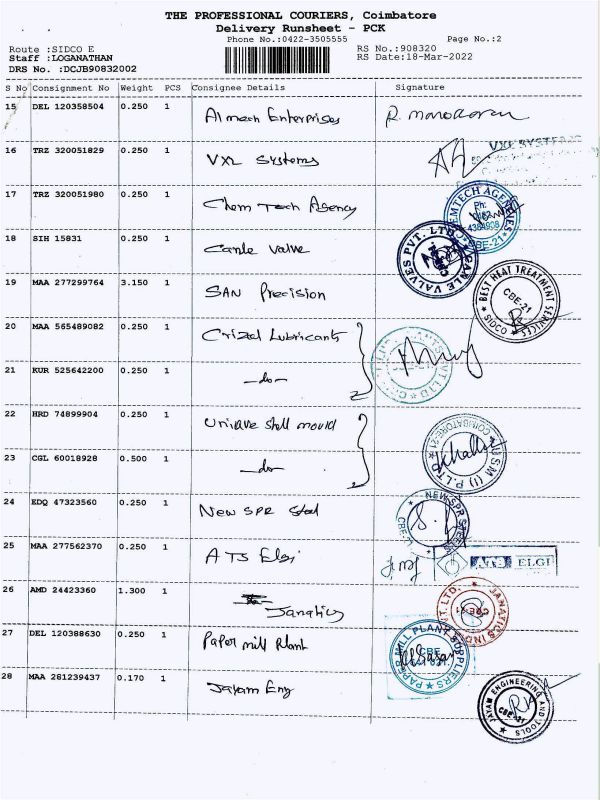 THE PROFESSIONAL COURIERS, Coimbatore
Delivery Runsheet - PCK
Phone No.:0422-3505555 Page No.:2
Route :SIDCO E RS No.:908320
Staff :LOGANATHAN RS Date:18-Mar-2022
DRS No. :DCJB90832002
S No Consignment No Weight PCS Consignee Details Signature
15 DEL 120358504 0.250 1 Almech Enterprises R. Manoharan
16 TRZ 320051829 0.250 1 VXL Systems VXL SYSTEMS
17 TRZ 320051980 0.250 1 Chem Tech Agency CHEMTECH AGENCIES Ph: 4384908 CBE-21
18 SIH 15831 0.250 1 Canle Valve CANLE VALVES PVT. LTD
19 MAA 277299764 3.150 1 SAN Precision BEST HEAT TREATMENT SERVICES CBE-21 SIDCO
20 MAA 565489082 0.250 1 Crizal Lubricants
21 KUR 525642200 0.250 1 -do-
22 HRD 74899904 0.250 1 Unique shell mould COIMBATORE-21 U S M (I) P.LTD
23 CGL 60018928 0.500 1 -do-
24 EDQ 47323560 0.250 1 New SPR Steel NEW SPR STEELS CBE-21
25 MAA 277562370 0.250 1 ATS Elgi ATS ELGI
26 AMD 24423360 1.300 1 Janatics JANATICS IND CBE-21 T. LTD.
27 DEL 120388630 0.250 1 Paper mill Plant PAPER MILL PLANT SUPPLIERS CBE
28 MAA 281239437 0.170 1 Jayam Eng JAYAM ENGINEERING AND TOOLS CBE-21